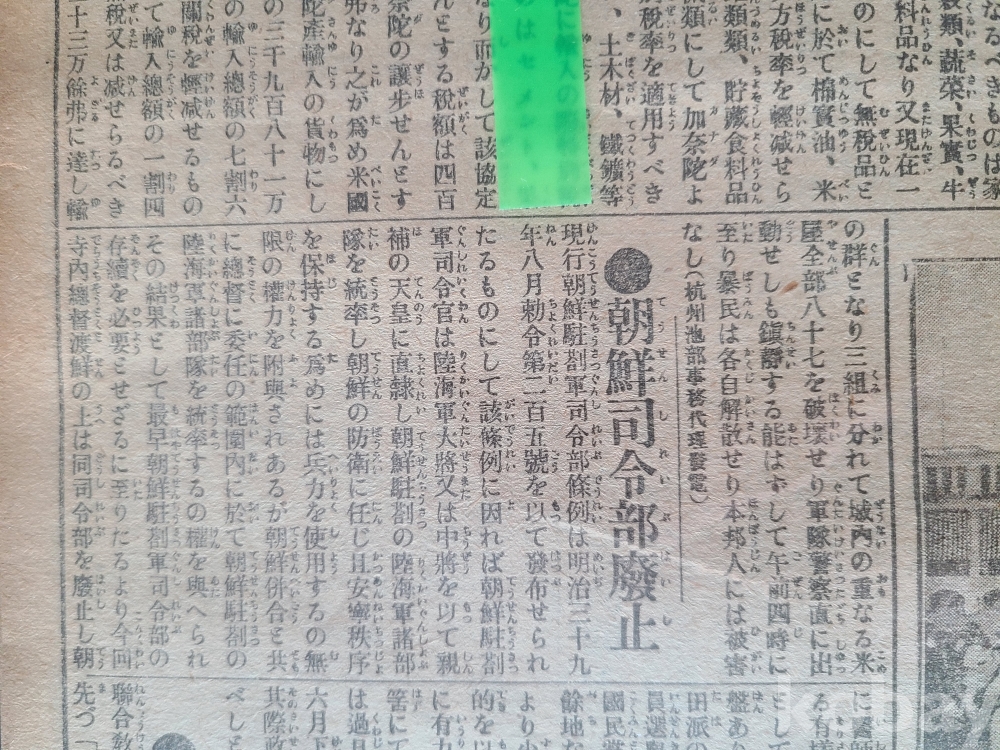 なるべきものは家
穀類、蔬菜、果實、牛
料品なり又現在一
のにして無税品と
に於て棉實油、米
方税率を輕減せら
類類、貯藏食料品
類にして加奈陀よ
税率を適用すべき
、土木材、鐵鑛等
なり而かして該協定
んとする税額は四百
奈陀の讓步せんとす
弗なり之が爲め米國
陀產輸入の貨物にし
の三千九百八十一万
の輸入總額の七割六
關税を輕減せるもの
て輸入總額の一割四
税又は减せらるべき
十三万餘弗に達し輸
の群となり三組に分れて城内の重なる米
屋全部八十七を破壞せり軍隊警察直に出
動せしも鎭靜する能はずして午前四時に
至り暴民は各自解散せり本邦人には被害
なし(杭州池部事務代理發電)
●朝鮮司令部廢止
現行朝鮮駐剳軍司令部條例は明治三十九
年八月勅令第二百五號を以て發布せられ
たるものにして該條例に因れば朝鮮駐剳
軍司令官は陸海軍大將又は中將を以て親
補の天皇に直隷し朝鮮駐剳の陸海軍諸部
隊を統率し朝鮮の防衛に任じ且安寧秩序
を保持する爲めには兵力を使用するの無
限の權力を附與されあるが朝鮮併合と共
に總督に委任の範圍内に於て朝鮮駐剳の
陸海軍諸部隊を統率するの權を與へられ
その結果として最早朝鮮駐剳軍司令部の
存續を必要とせざるに至りたるより今回
寺内總督渡鮮の上は同司令部を廢止し朝
る有
として
盤あり
田派の
員選
國民黨
餘地な
より少
的を以
に有力
筈にて
は過日
六月下
其際政
べしと
聯合教
先づ「